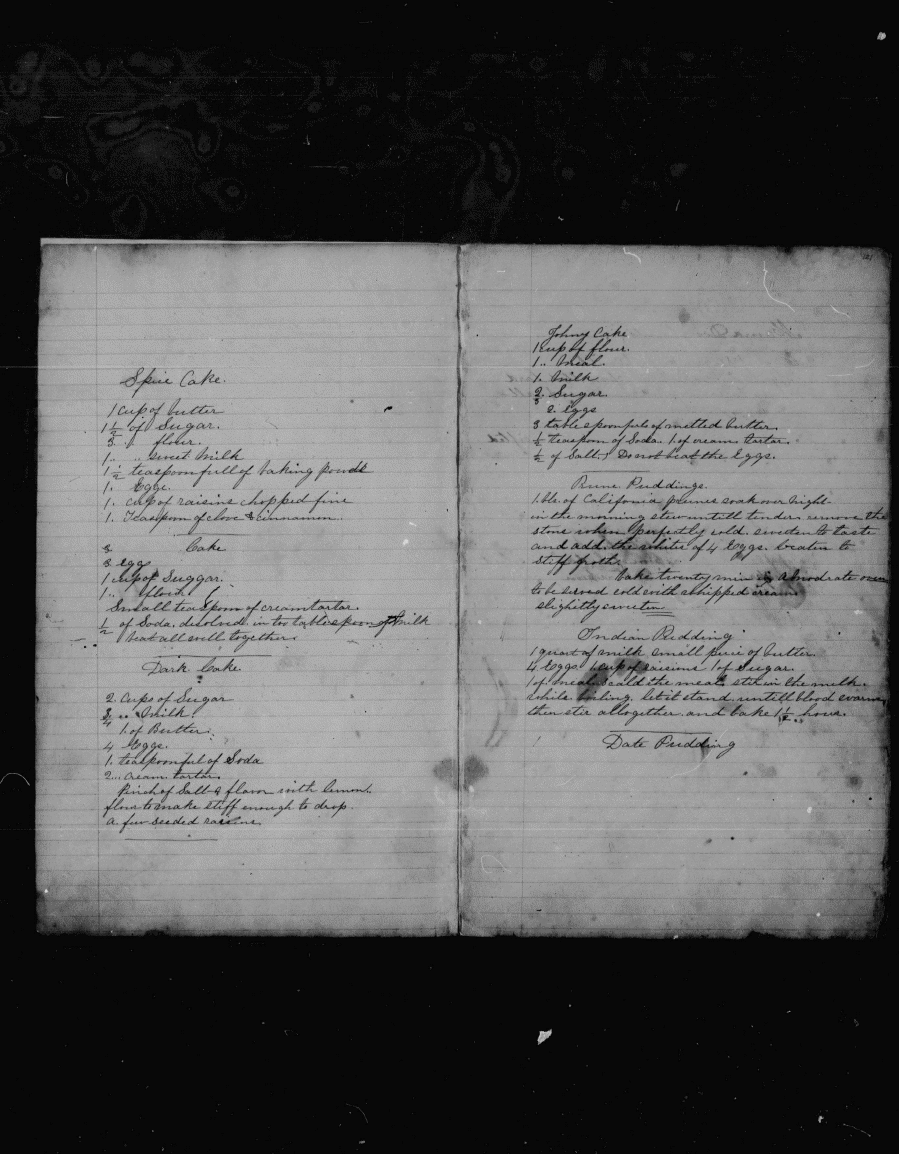 Spice Cake.
1 cup of butter
1 1/2 of Sugar.
3 " flour.
1 " " sweet milk
1 1/2 teaspoonfull of baking powde
1. Eggs.
1. cup of raisins chopped fine
1. Teaspoon of clove & cinnamon.
3. Cake
3 egg
1 cup of Suggar.
1 " flour
Small teaspoon of creamtartar.
1/2 of Soda. desolved in too tablespoon of milk
beat all well together.
Dark Cake.
2. Cups of Sugar
3/4 " milk.
1. of Butter.
4 Eggs.
1. teaspoonful of Soda
2 .. cream tartar.
Pinch of Salt & flavor with lemon.
flour to make stiff enough to drop.
a few seeded raisins.
Johny Cake
1 cup of flour.
1 .. meal.
1. milk
2/3 Sugar.
2. Eggs
3 tablespoonfuls of melted butter.
1/2 teaspoon of Soda. 1 of cream tartar.
1/2 of Salt. Do not beat the Eggs.
Prune Puddings.
1 lb. of Califonia prunes soak over night
in the morning stew untill tender. remove the
stone when perfectly cold. sweeten to taste
and add the whites of 4 Eggs. beaten to
stiff froth
bake twenty min in a moderate oven
to be served cold with whipped cream
slightly sweeten
Indian Pudding
1 quart of milk small piece of butter.
4 Eggs 1 cup of raisins 1 of Sugar.
1 of meal. scald the meal stir in the milk
while boiling. let it stand untill blood warm
then stir altogether and bake 1 1/2 hour.
Date Pudding